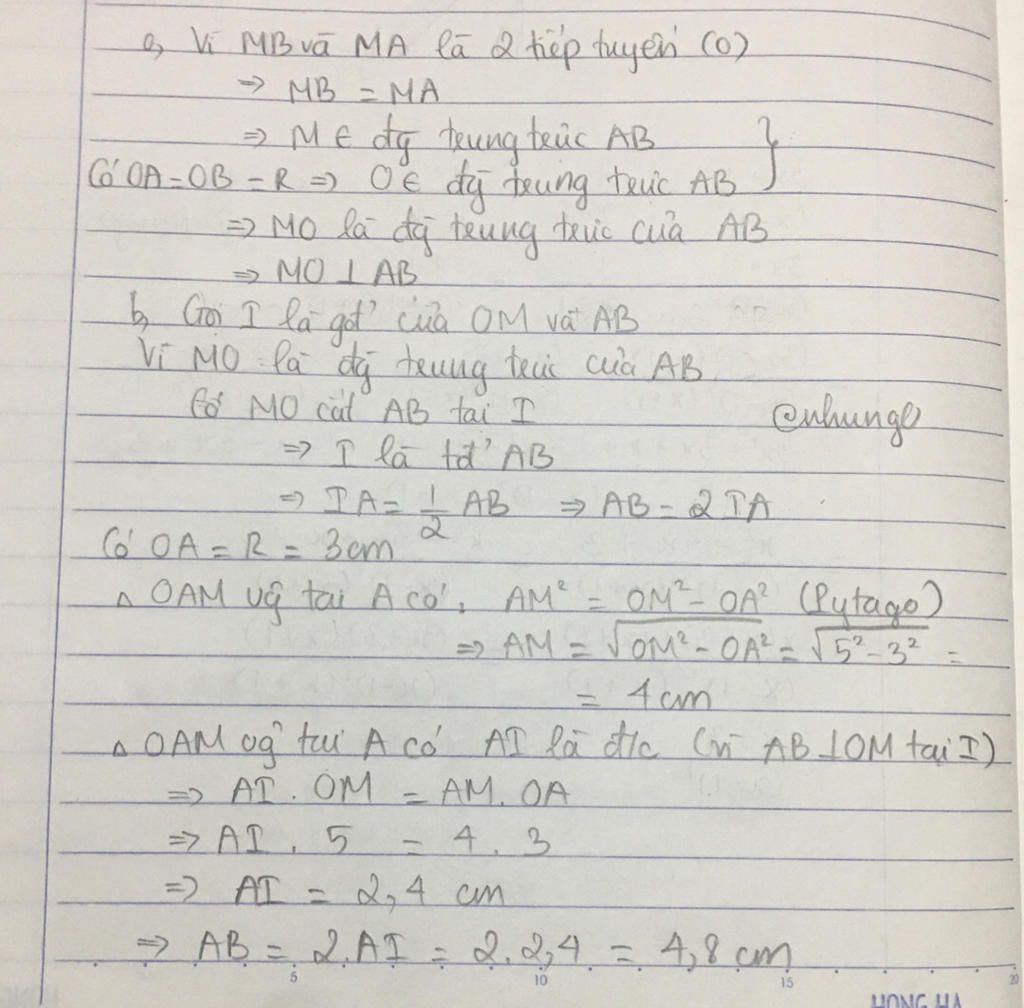 a, Vì MB và MA là 2 tiếp tuyến (O)
=> MB = MA
=> M ∈ đg trung trực AB
Có OA = OB = R => O ∈ đg trung trực AB
=> MO là đg trung trực của AB
=> MO ⊥ AB
b, Gọi I là gđ' của OM và AB
Vì MO là đg trung trực của AB
Có MO cắt AB tại I
@nhungl
=> I là tđ' AB
=> IA = 1/2 AB => AB = 2 IA
Có OA = R = 3cm
Δ OAM vg tại A có, AM² = OM² - OA² (Pytago)
=> AM = √(OM² - OA²) = √(5² - 3²) =
= 4 cm
Δ OAM vg tại A có AI là đ/c (vì AB ⊥ OM tại I)
=> AI . OM = AM. OA
=> AI . 5 = 4 . 3
=> AI = 2,4 cm
=> AB = 2.AI = 2. 2,4 = 4,8 cm
5 10 15 20
HONG HA